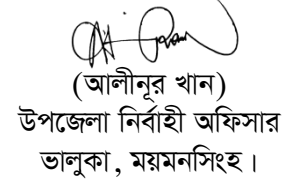 (আলীনূর খান)
উপজেলা নির্বাহী অফিসার
ভালুকা, ময়মনসিংহ।